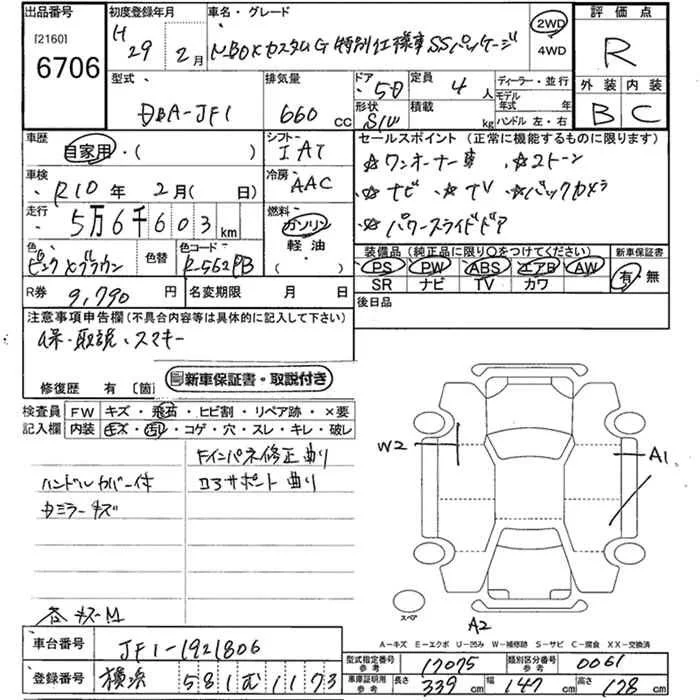 出品番号
[2160]
6706
初度登録年月
H 29 年 2 月
車名・グレード
NBOXカスタムG 特別仕様車SSパッケージ
2WD
4WD
評価点
R
外装 内装
B C
型式
DBA-JF1
排気量
660 cc
ドア
5D
形状
S/W
定員
4 人
積載
kg
ディーラー・並行
モデル年式 年
ハンドル 左・右
車歴
自家用・( )
シフト
IAT
車検
R10 年 2 月( 日)
冷房
AAC
走行
5万6千603 km
燃料
ガソリン
軽油
( )
色
ピンク×ブラウン
色替
色コード
R-562PB
R券 9,790 円
名変期限 月 日
セールスポイント (正常に機能するものに限ります)
☆ワンオーナー車 ☆2トーン
☆ナビ ☆TV ☆バックカメラ
☆パワースライドドア
装備品 (純正品に限り○をつけてください)
PS PW ABS エアB AW
SR ナビ TV カワ
新車保証書
有・無
後日品
注意事項申告欄(不具合内容等は具体的に記入して下さい)
保・取説・スマキー
修復歴 有 [箇
新車保証書・取説付き
検査員 FW キズ・飛石・ヒビ割・リペア跡・×要
記入欄 内装 キズ・汚・コゲ・穴・スレ・キレ・破レ
ハンドルカバー付
カミラーキズ
Fインパネ修正曲り
コアサポート曲り
W2
A1
A2
スペア
A-キズ E-エクボ U-凹み W-補修跡 S-サビ C-腐食 XX-交換済
車台番号 JF1-1921806
登録番号 横浜 581 む 1173
型式指定番号 参考 17075
類別区分番号 参考 0061
車庫証明用 参考 長さ 339 cm 幅 147 cm 高さ 178 cm